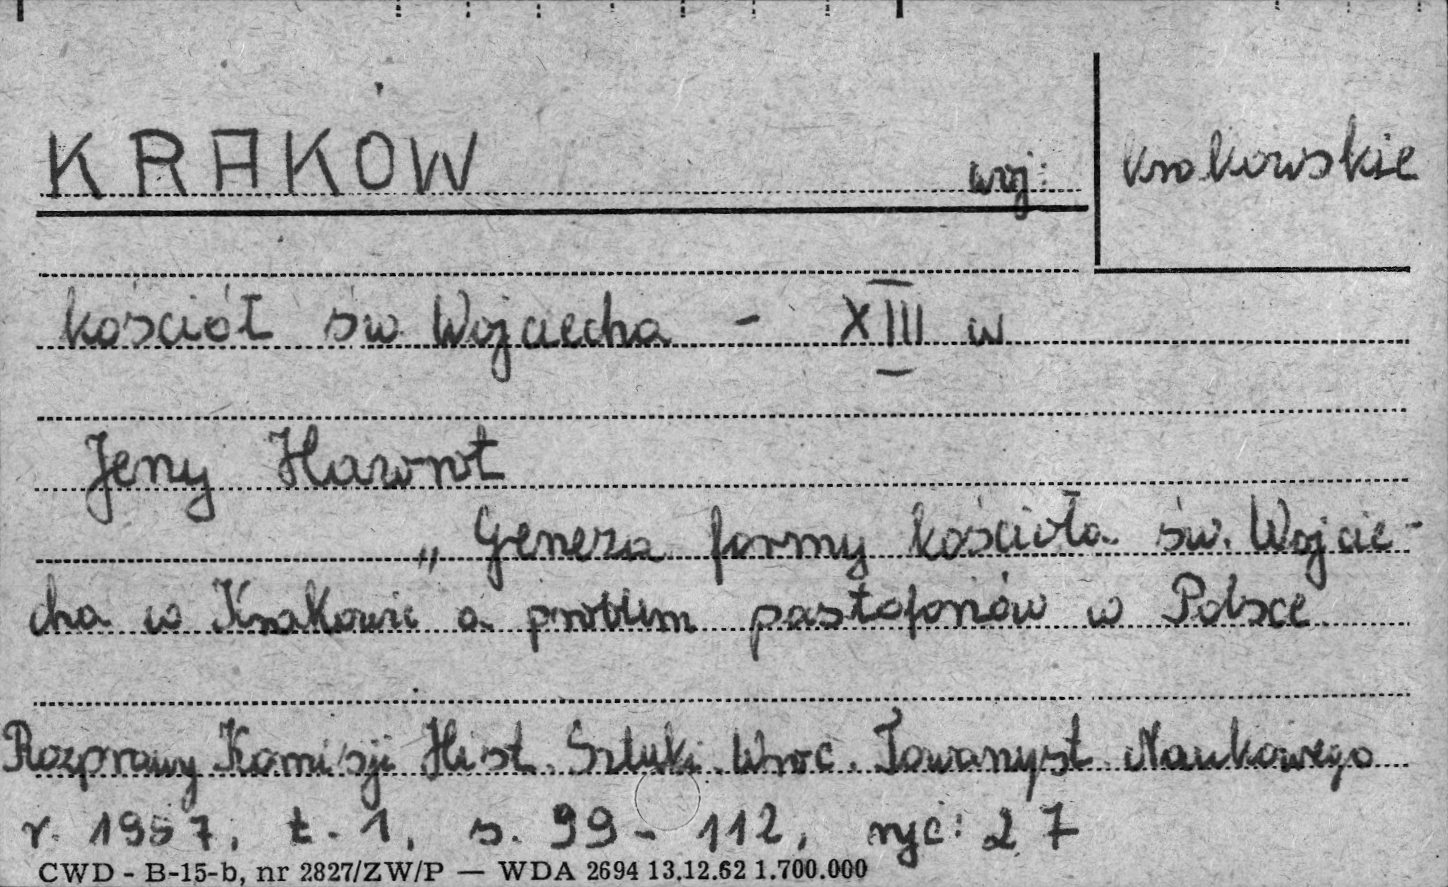 KRAKOW woj: krakowskie
kościół św. Wojciecha - XIII w
Jerzy Hawrot
„Geneza formy kościoła św. Wojcie-
cha w Krakowie a problem pastoforiów w Polsce
Rozprawy Komisji Hist. Sztuki Wroc. Towarzyst. Naukowego
r. 1957, t. 1, s. 99 - 112, ryc: 27
CWD - B-15-b, nr 2827/ZW/P — WDA 2694 13.12.62 1.700.000